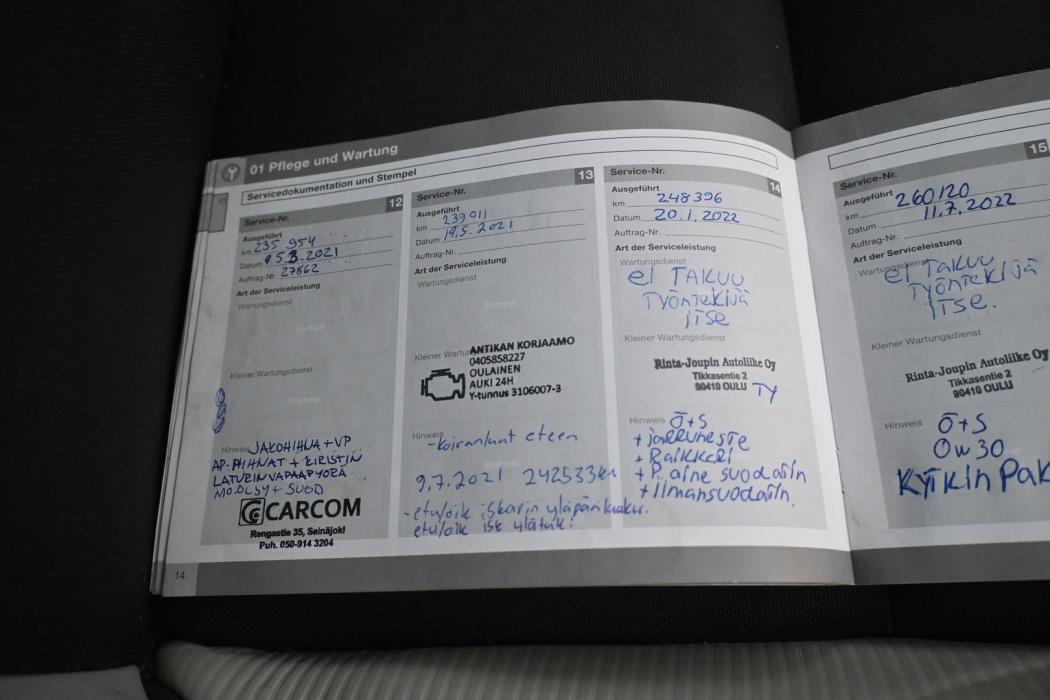 01 Pflege und Wartung
Servicedokumentation und Stempel
12
Service-Nr.
Ausgeführt
km 235 954
Datum 15.3.2021
Auftrag-Nr. 27862
Art der Serviceleistung
Wartungsdienst
Stempel
Kleiner Wartungsdienst
Stempel
Hinweis JAKOHIHNA + VP
AP-HIHNAT + KIRISTIN
LATURINVAPAAPYÖRÄ
MO.ÖLJY + SUOD
CARCOM
Rengastie 35, Seinäjoki
Puh. 050-914 3204
13
Service-Nr.
Ausgeführt
km 239 011
Datum 19.5.2021
Auftrag-Nr.
Art der Serviceleistung
Wartungsdienst
Stempel
Kleiner Wartu
ANTIKAN KORJAAMO
0405858227
OULAINEN
AUKI 24H
Y-tunnus 3106007-3
Hinweis
-koiranluut eteen
9.7.2021 242533km
-etu/oik iskarin yläpään kuku.
etu/oik isk ylätuk.
14
Service-Nr.
Ausgeführt
km 248396
Datum 20.1.2022
Auftrag-Nr.
Art der Serviceleistung
Wartungsdienst
ei TAKUU
TYÖNTEKIJÄ
ITSE
Kleiner Wartungsdienst
Rinta-Joupin Autoliike Oy
Tikkasentie 2
90410 OULU
TY
Hinweis Ö+S
+ jarruneste
+ Raikkeri
+ P.aine suodatin
+ Ilmansuodatin
15
Service-Nr.
Ausgeführt
km 260120
Datum 11.7.2022
Auftrag-Nr.
Art der Serviceleistung
Wartungsdienst
ei Takuu
TYÖNTEKIJÄ
ITSE.
Kleiner Wartungsdienst
Rinta-Joupin Autoliike Oy
Tikkasentie 2
90410 OULU
Hinweis Ö+S
0w30
KYTKIN PAK
14